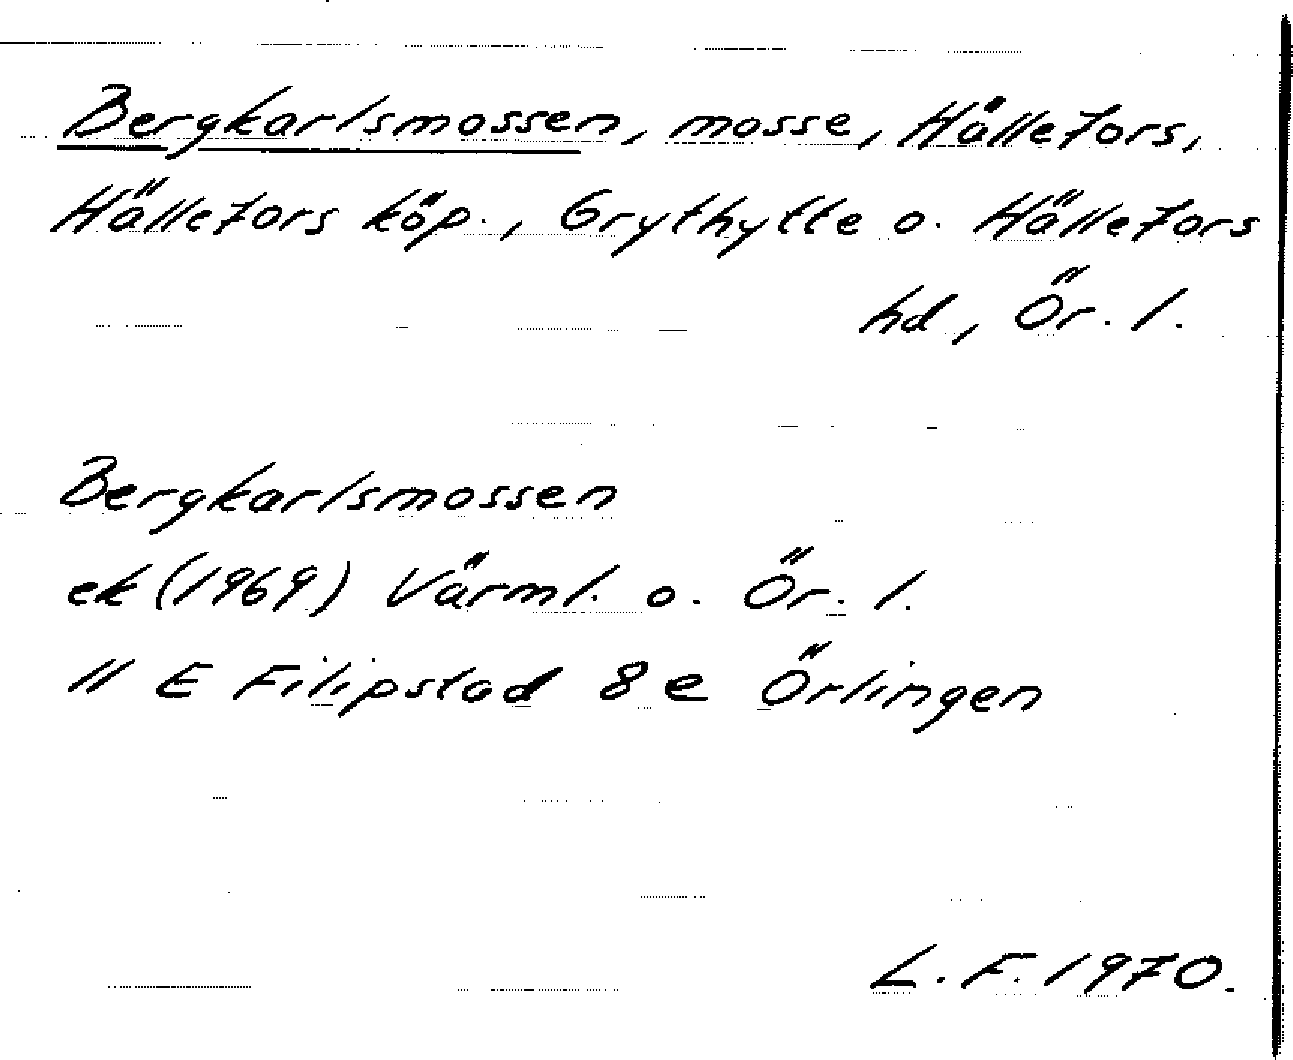 Bergkarlsmossen, mosse, Hällefors,
Hällefors köp., Grythytte o. Hällefors
hd, Ör. l.
Bergkarlsmossen
ek (1969) Värml. o. Ör. l.
11 E Filipstad 8 e Örlingen
L. F. 1970.